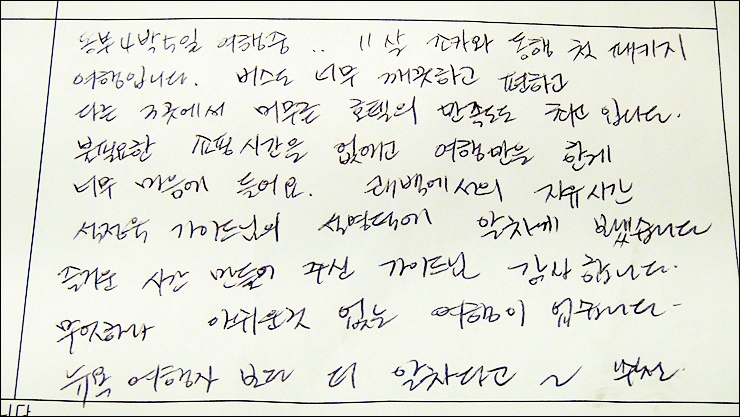 동부4박5일 여행중 .. 11살 조카와 동행 첫 패키지
여행입니다. 버스도 너무 깨끗하고 편하고
다른 3곳에서 머무른 호텔의 만족도도 최고 입니다.
불필요한 쇼핑시간을 없애고 여행만을 한게
너무 마음에 들어요. 퀘백에서의 자유시간
가이드님의 알차게 보냈습니다
즐거운 시간 만들어 주신 가이드님 감사 합니다.
무엇하나 아쉬운것 없는 여행이 였습니다-
뉴욕 여행사 보다 더 알차다고 ~
니다